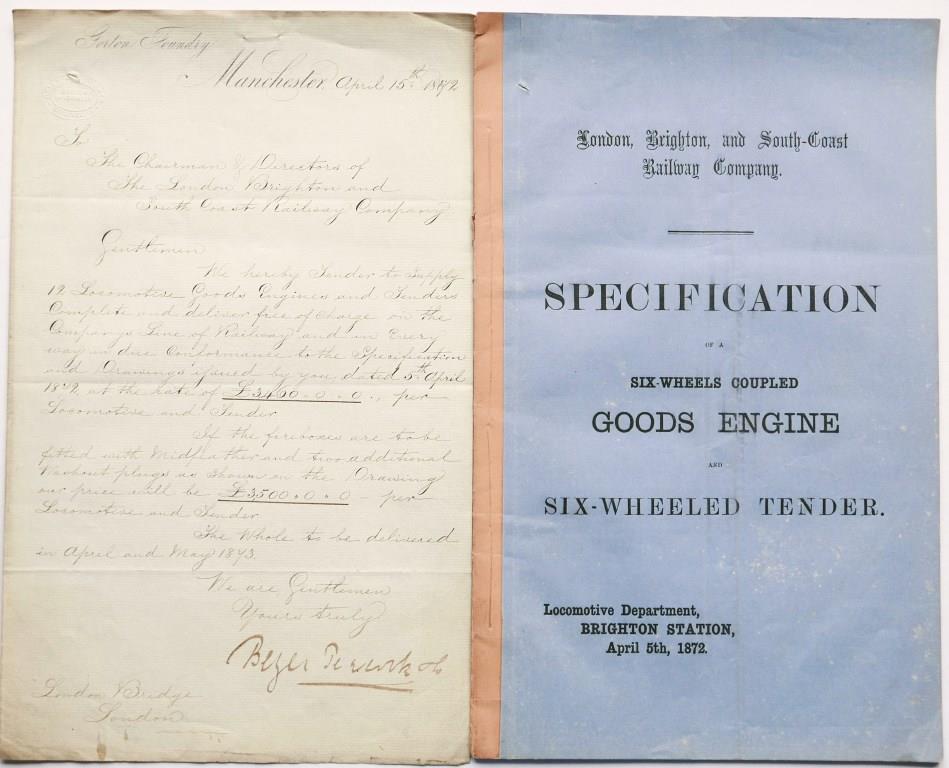 Gorton Foundry
Manchester, April 15th 1872
To
The Chairman & Directors of
The London Brighton and
South Coast Railway Company
Gentlemen
We hereby Tender to Supply
12 Locomotive Goods Engines and Tenders
Complete and deliver free of Charge on the
Companys Line of Railway and in Every
way in due Conformance to the Specification
and Drawings issued by you dated 5th April
1872 at the rate of £3460.0.0., per
Locomotive and Tender
If the fireboxes are to be
fitted with Midfeather and two additional
Washout plugs as shown on the Drawing
our price will be £3500.0.0 - per
Locomotive and Tender
The Whole to be delivered
in April and May 1873.
We are Gentlemen
Yours truly
Beyer Peacock & Co
London Bridge
London
London, Brighton, and South-Coast
Railway Company.
SPECIFICATION
OF A
SIX-WHEELS COUPLED
GOODS ENGINE
AND
SIX-WHEELED TENDER.
Locomotive Department,
BRIGHTON STATION,
April 5th, 1872.